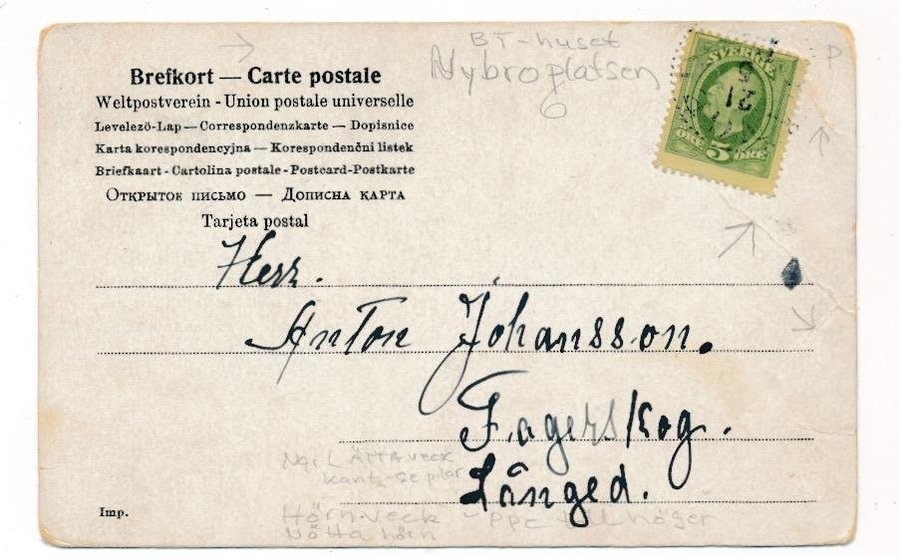 BT-huset
Nybroplatsen
Brefkort — Carte postale
Weltpostverein - Union postale universelle
Levelező-Lap — Correspondenzkarte — Dopisnice
Karta korespondencyjna — Korespondenční listek
Briefkaart - Cartolina postale - Postcard-Postkarte
Открытое письмо — Дописна карта
Tarjeta postal
SVERIGE
21
ÖRE 5 ÖRE
P
Herr.
Anton Johansson.
Fagerskog.
Långed.
kant-se pilar
Imp.
Hörn-veck - ppc till höger
Nötta hörn